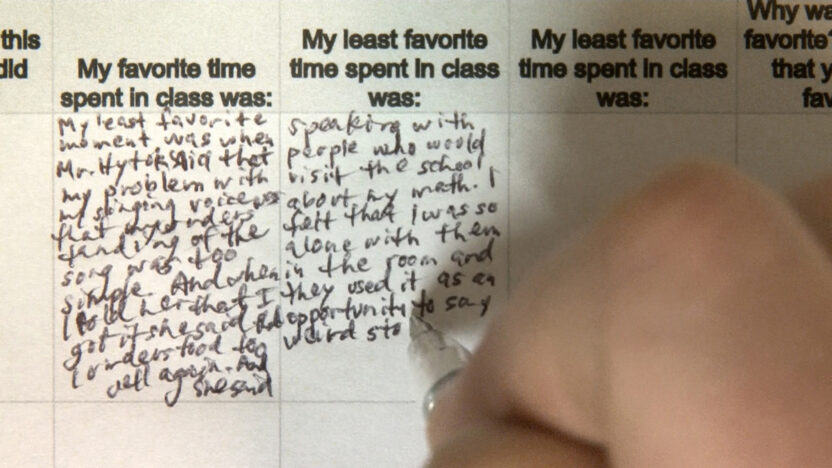 this
did
My favorite time
spent in class was:
My least favorite
moment was when
Mr. Hytok said that
my problem with
my singing voice was
that my unders
tanding of the
song was too
simple. And when
I told her that I
got it she said
I understood too
well again. And
she said
My least favorite
time spent in class
was:
speaking with
people who would
visit the school
about my math. I
felt that I was so
alone with them
in the room and
they used it as an
opportunity to say
weird sto
My least favorite
time spent in class
was:
Why wa
favorite?
that y
fav